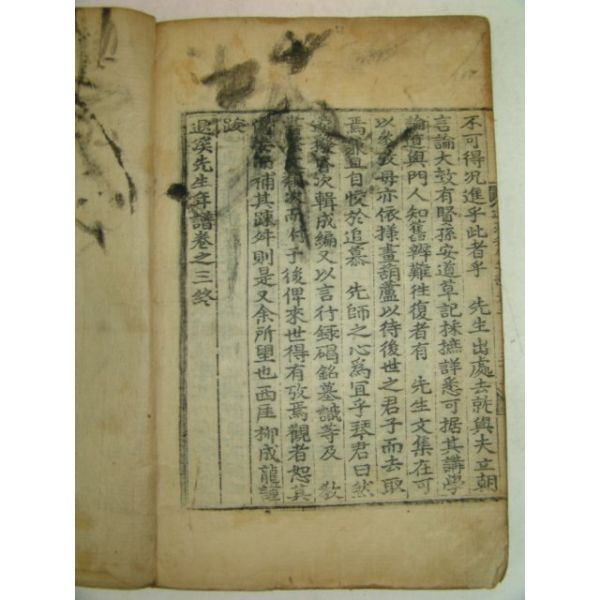 不可得況進乎此者乎 先生出處去就與夫立朝
言論大致有賢孫安道草記採摭詳悉可据其講學
論道與門人知舊辨難往復者有 先生文集在可
以 故毋亦依㨾畫葫蘆以待後世之君子而去取
焉 且自慢於追慕 先師之心爲宜乎琴君曰然
次輯成編又以言行錄碣銘墓誌等及 敎
次而付 子後俾來世得有攷焉觀者恕其
補其踈舛則是又余所望也西厓柳成龍謹
跋
退溪先生年譜卷之三終